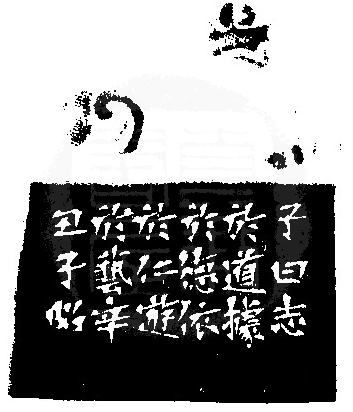 子曰志
於道據
於德依
於仁遊
於藝辛
丑子